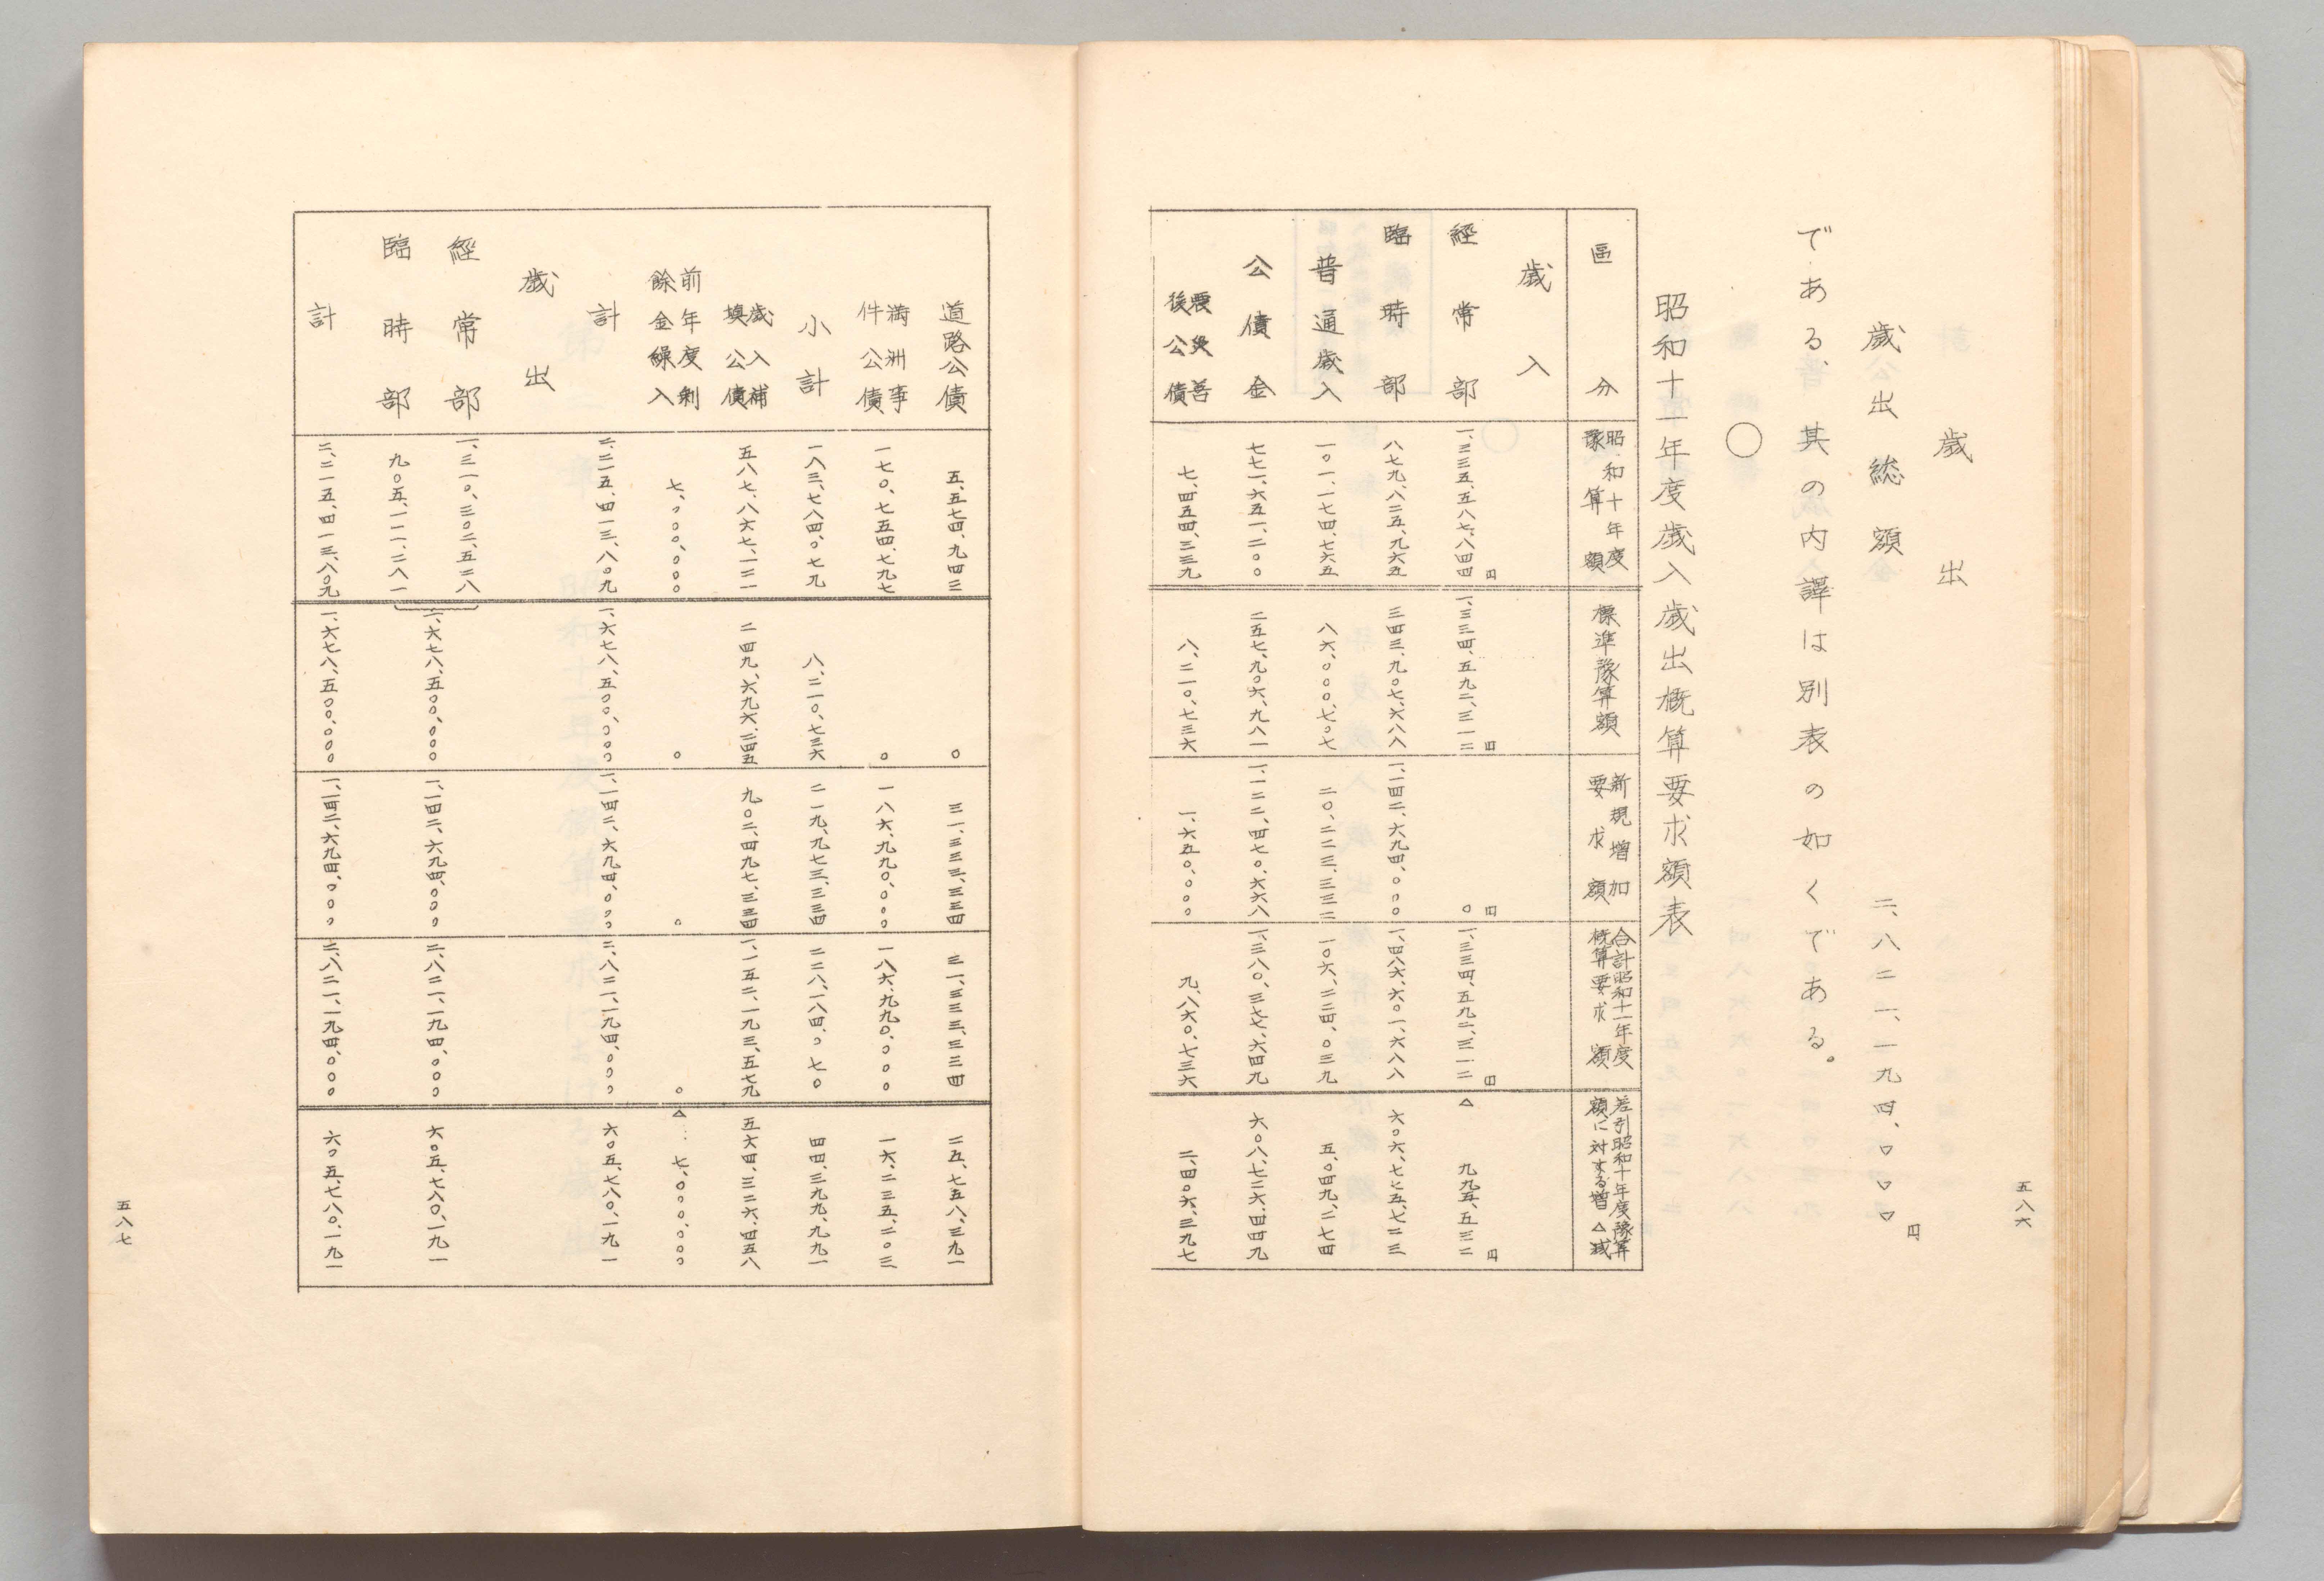 五八六
歳出
歳出総額 二、八二一、一九四、〇〇〇円
である、其の内譯は別表の如くである。
〇
昭和十一年度歳入歳出概算要求額表
區分 昭和十年度豫算額 標準豫算額 新規増加要求額 合計昭和十一年度概算要求額 差引昭和十年度豫算額に対する増△減
歳入
經常部 一、三三五、五八七、八四四円 一、三三四、五九二、三一二円 〇円 一、三三四、五九二、三一二円 △九九五、五三二円
臨時部 八七九、八二五、九六五 三四三、九〇七、六八八 一、一四二、六九四、〇〇〇 一、四八六、六〇一、六八八 六〇六、七七五、七二三
普通歳入 一〇一、一七四、七六五 八六、〇〇〇、七〇七 二〇、二二三、三三二 一〇六、二二四、〇三九 五、〇四九、二七四
公債金 七七一、六五一、二〇〇 二五七、九〇六、九八一 一、一二二、四七〇、六六八 一、三八〇、三七七、六四九 六〇八、七二六、四四九
震災善後公債 七、四五四、三三九 八、二一〇、七三六 一、六五〇、〇〇〇 九、八六〇、七三六 二、四〇六、三九七
道路公債 五、五七四、九四三 〇 三一、三三三、三三四 三一、三三三、三三四 二五、七五八、三九一
満洲事件公債 一七〇、七五四、七九七 〇 一八六、九九〇、〇〇〇 一八六、九九〇、〇〇〇 一六、二三五、二〇三
小計 一八三、七八四、〇七九 八、二一〇、七三六 二一九、九七三、三三四 二二八、一八四、〇七〇 四四、三九九、九九一
歳入補填公債 五八七、八六七、一二一 二四九、六九六、二四五 九〇二、四九七、三三四 一、一五二、一九三、五七九 五六四、三二六、四五八
前年度剰餘金繰入 七、〇〇〇、〇〇〇 〇 〇 〇 △七、〇〇〇、〇〇〇
計 二、二一五、四一三、八〇九 一、六七八、五〇〇、〇〇〇 一、一四二、六九四、〇〇〇 二、八二一、一九四、〇〇〇 六〇五、七八〇、一九一
歳出
經常部 一、三一〇、三〇二、五二八 一、六七八、五〇〇、〇〇〇 一、一四二、六九四、〇〇〇 二、八二一、一九四、〇〇〇 六〇五、七八〇、一九一
臨時部 九〇五、一一一、二八一
計 二、二一五、四一三、八〇九 一、六七八、五〇〇、〇〇〇 一、一四二、六九四、〇〇〇 二、八二一、一九四、〇〇〇 六〇五、七八〇、一九一
五八七